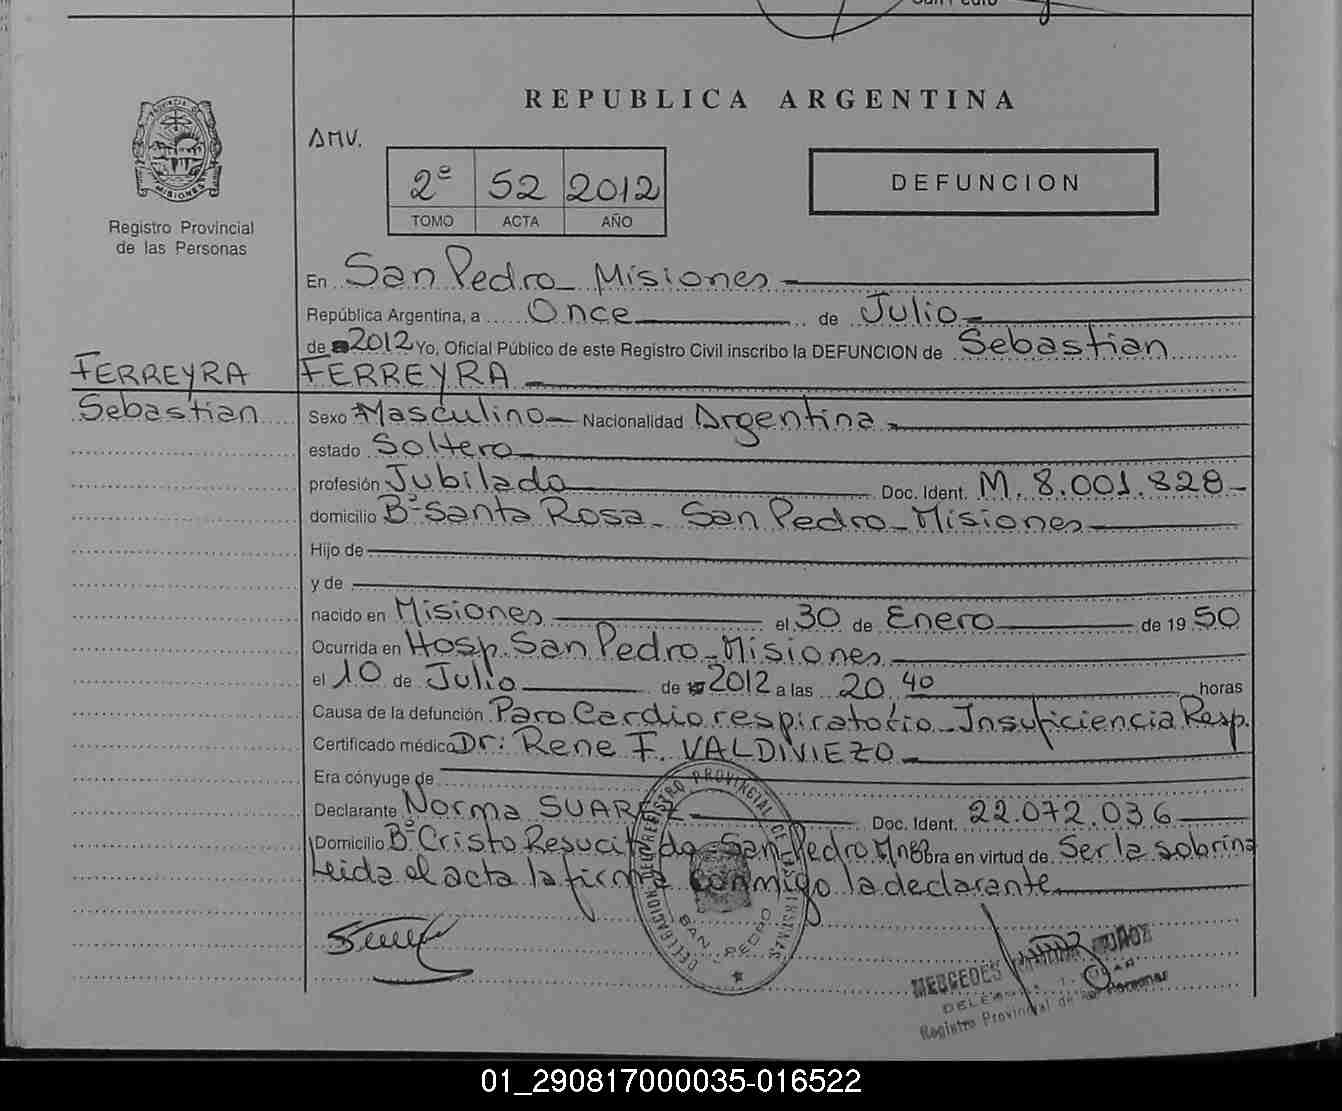 San Pedro
REPUBLICA ARGENTINA
PROVINCIA DE
MISIONES
Registro Provincial
de las Personas
AMV.
2º 52 2012
TOMO ACTA AÑO
DEFUNCION
En San Pedro - Misiones
República Argentina, a Once de Julio
de 2012 Yo, Oficial Público de este Registro Civil inscribo la DEFUNCION de Sebastian
FERREYRA FERREYRA
Sebastian
Sexo Masculino - Nacionalidad Argentina
estado Soltero
profesión Jubilado Doc. Ident. M. 8.001.828 -
domicilio Bº Santa Rosa - San Pedro - Misiones
Hijo de
y de
nacido en Misiones el 30 de Enero de 1950
Ocurrida en Hosp. San Pedro - Misiones
el 10 de Julio de 2012 a las 20 40 horas
Causa de la defunción Paro Cardio respiratorio - Insuficiencia Resp.
Certificado médico Dr: Rene F. VALDIVIEZO
Era cónyuge de
Declarante Norma SUAREZ Doc. Ident. 22.072.036
Domicilio Bº Cristo Resucitado - San Pedro Mnes obra en virtud de Ser la sobrina
Leida el acta la firma conmigo la declarante
REGISTRO PROVINCIAL DE LAS PERSONAS
DELEGACION
SAN PEDRO
MERCEDES
Registro Provincial de las Personas
01_290817000035-016522